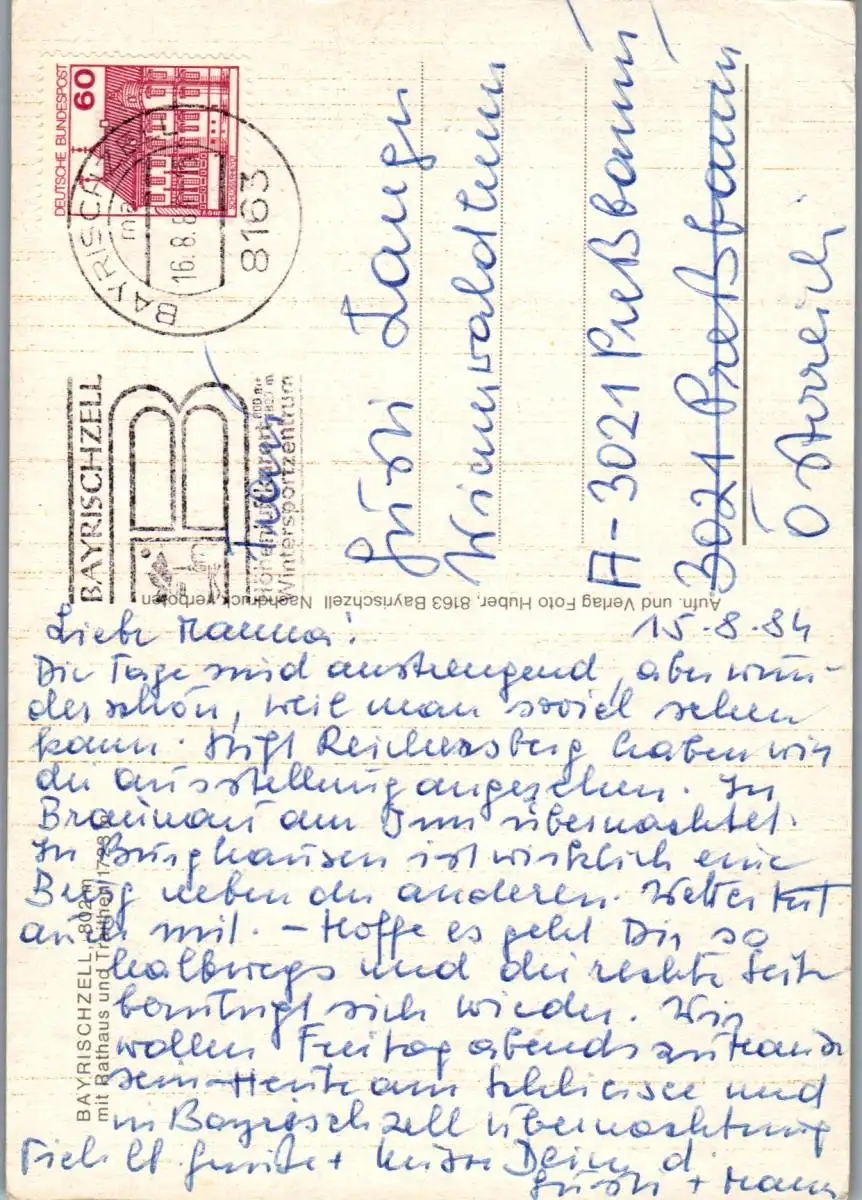 DEUTSCHE BUNDESPOST
60
BAYRISCHZELL
16.8.8
8163
BAYRISCHZELL
Höhenluftkurort
Wintersportzentrum
Gusti Langer
Wienerwaldheim
A-3021 Preßbaum
3021 Preßbaum
Österreich
Aufn. und Verlag Foto Huber, 8163 Bayrischzell Nachdruck verboten
BAYRISCHZELL, 802 m
mit Rathaus und Traithen
15.8.84
Liebe Mama!
Die Tage sind anstrengend, aber wun-
derschön, weil man soviel sehen
kann. Stift Reichersberg haben wir
die Ausstellung angesehen. In
Braunau am Inn übernachtet.
In Burghausen ist wirklich eine
Burg neben der anderen. Wetter tut
auch mit. – Hoffe es geht Dir so
halbwegs und die rechte Seite
beruhigt sich wieder. Wir
wollen Freitag abends zuhause
sein – Heute am Schliersee und
in Bayrischzell übernachtung
Viele lb. Grüße + Küsse Deine
Gusti + Hans